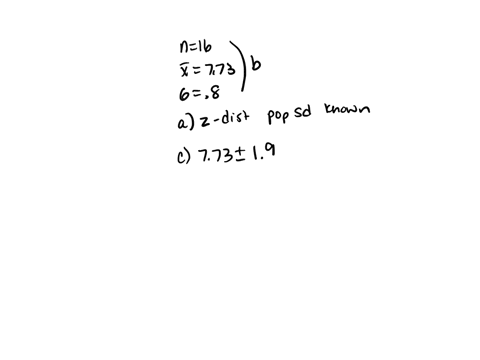 n=16
x̄=7.73 ) b
6=.8
a) z-dist pop sd known
c) 7.73 ± 1.9